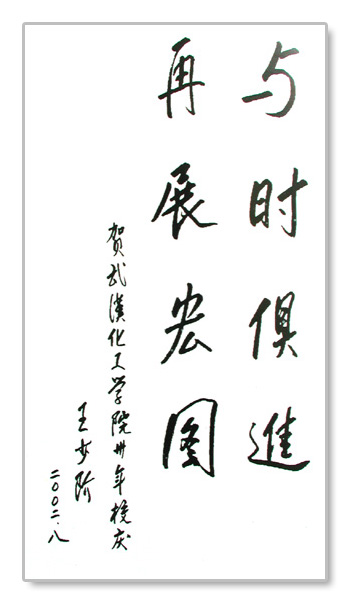 与时俱進
再展宏图
贺武漢化工学院卅年校庆
王少阶
二〇〇二.八